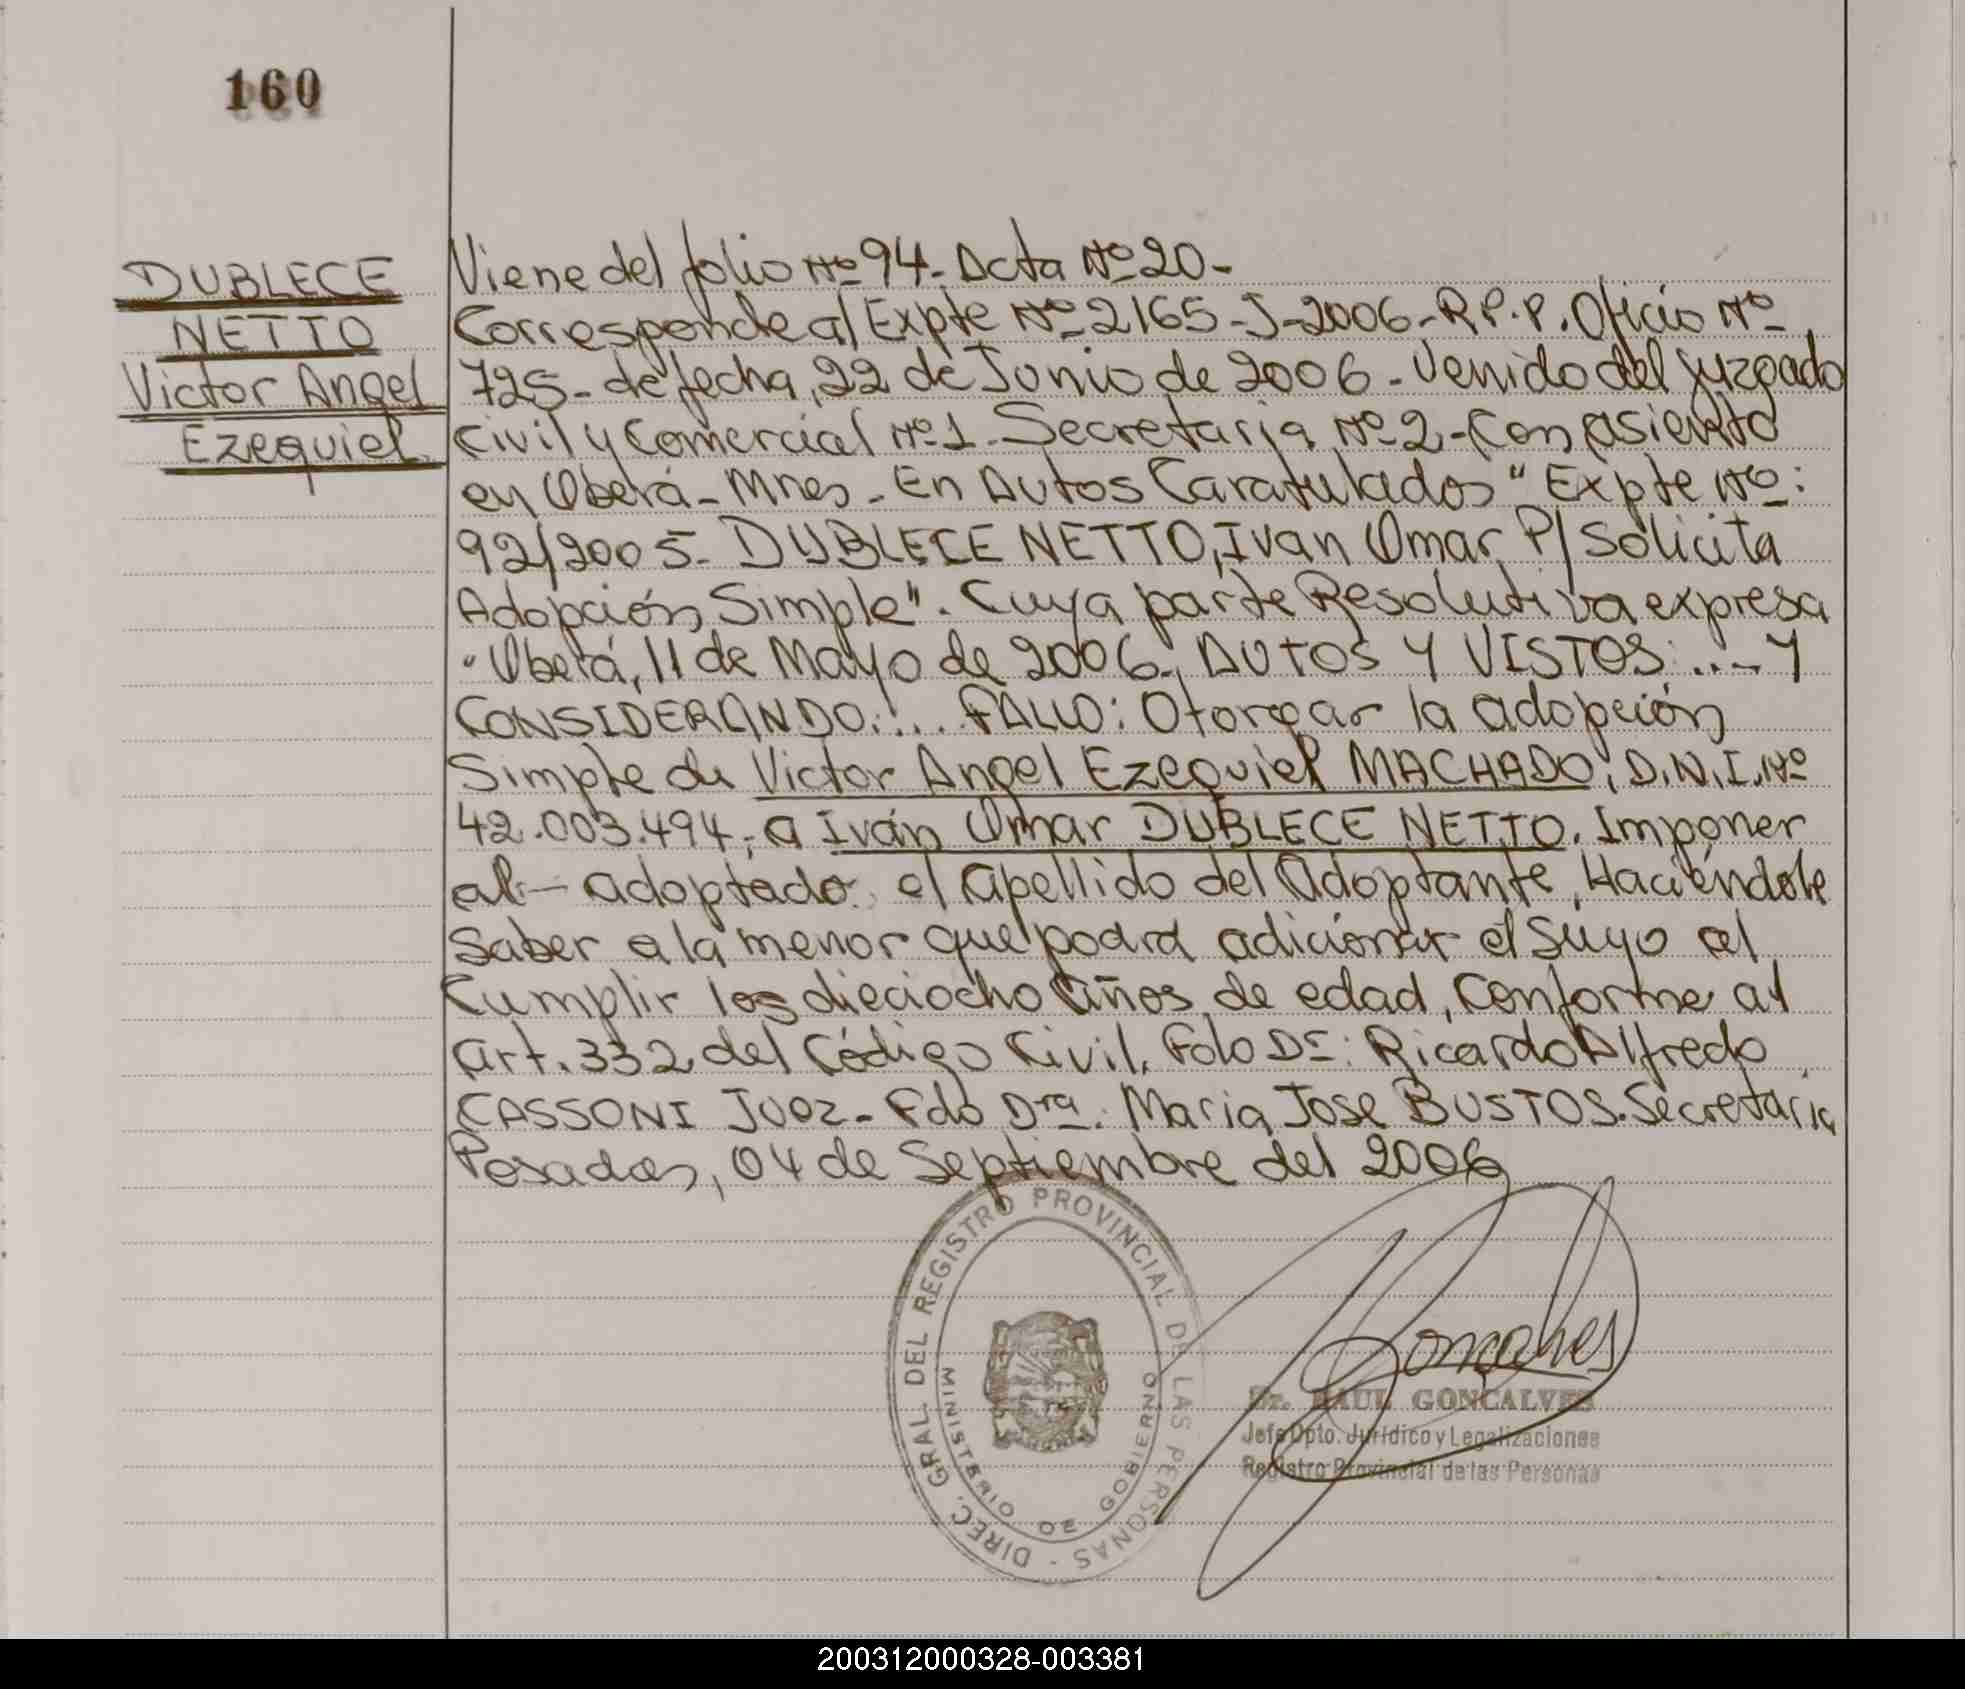 160
DUBLECE
NETTO
Victor Angel
Ezequiel
Viene del folio Nº 94. Acta Nº 20-
Corresponde al Expte Nº 2165-J-2006-R.P.P. Oficio Nº
725- de fecha, 22 de Junio de 2006 - Venido del Juzgado
Civil y Comercial Nº 1. Secretaria Nº 2 - Con asiento
en Oberá - Mnes - En Autos Caratulados "Expte Nº:
92/2005- DUBLECE NETTO, Ivan Omar P/ Solicita
Adopción Simple". Cuya parte Resolutiva expresa
"Oberá, 11 de Mayo de 2006., AUTOS Y VISTOS:.... Y
CONSIDERANDO:... FALLO: Otorgar la adopción
Simple de Victor Angel Ezequiel MACHADO, D.N.I. Nº
42.003.494, a Iván Omar DUBLECE NETTO. Imponer
al - adoptado el apellido del Adoptante, Haciéndole
Saber a la menor que podrá adicionar el suyo al
Cumplir los dieciocho años de edad, Conforme al
art. 332 del Código Civil. Fdo Dr: Ricardo Alfredo
CASSONI Juez - Fdo Dra. Maria Jose BUSTOS. Secretaria
Posadas, 04 de Septiembre del 2006
DIREC. GRAL. DEL REGISTRO PROVINCIAL DE LAS PERSONAS -
MINISTERIO DE GOBIERNO
Gonçalves
Dr. RAUL GONCALVES
Jefe Dpto. Jurídico y Legalizaciones
Registro Provincial de las Personas
200312000328-003381